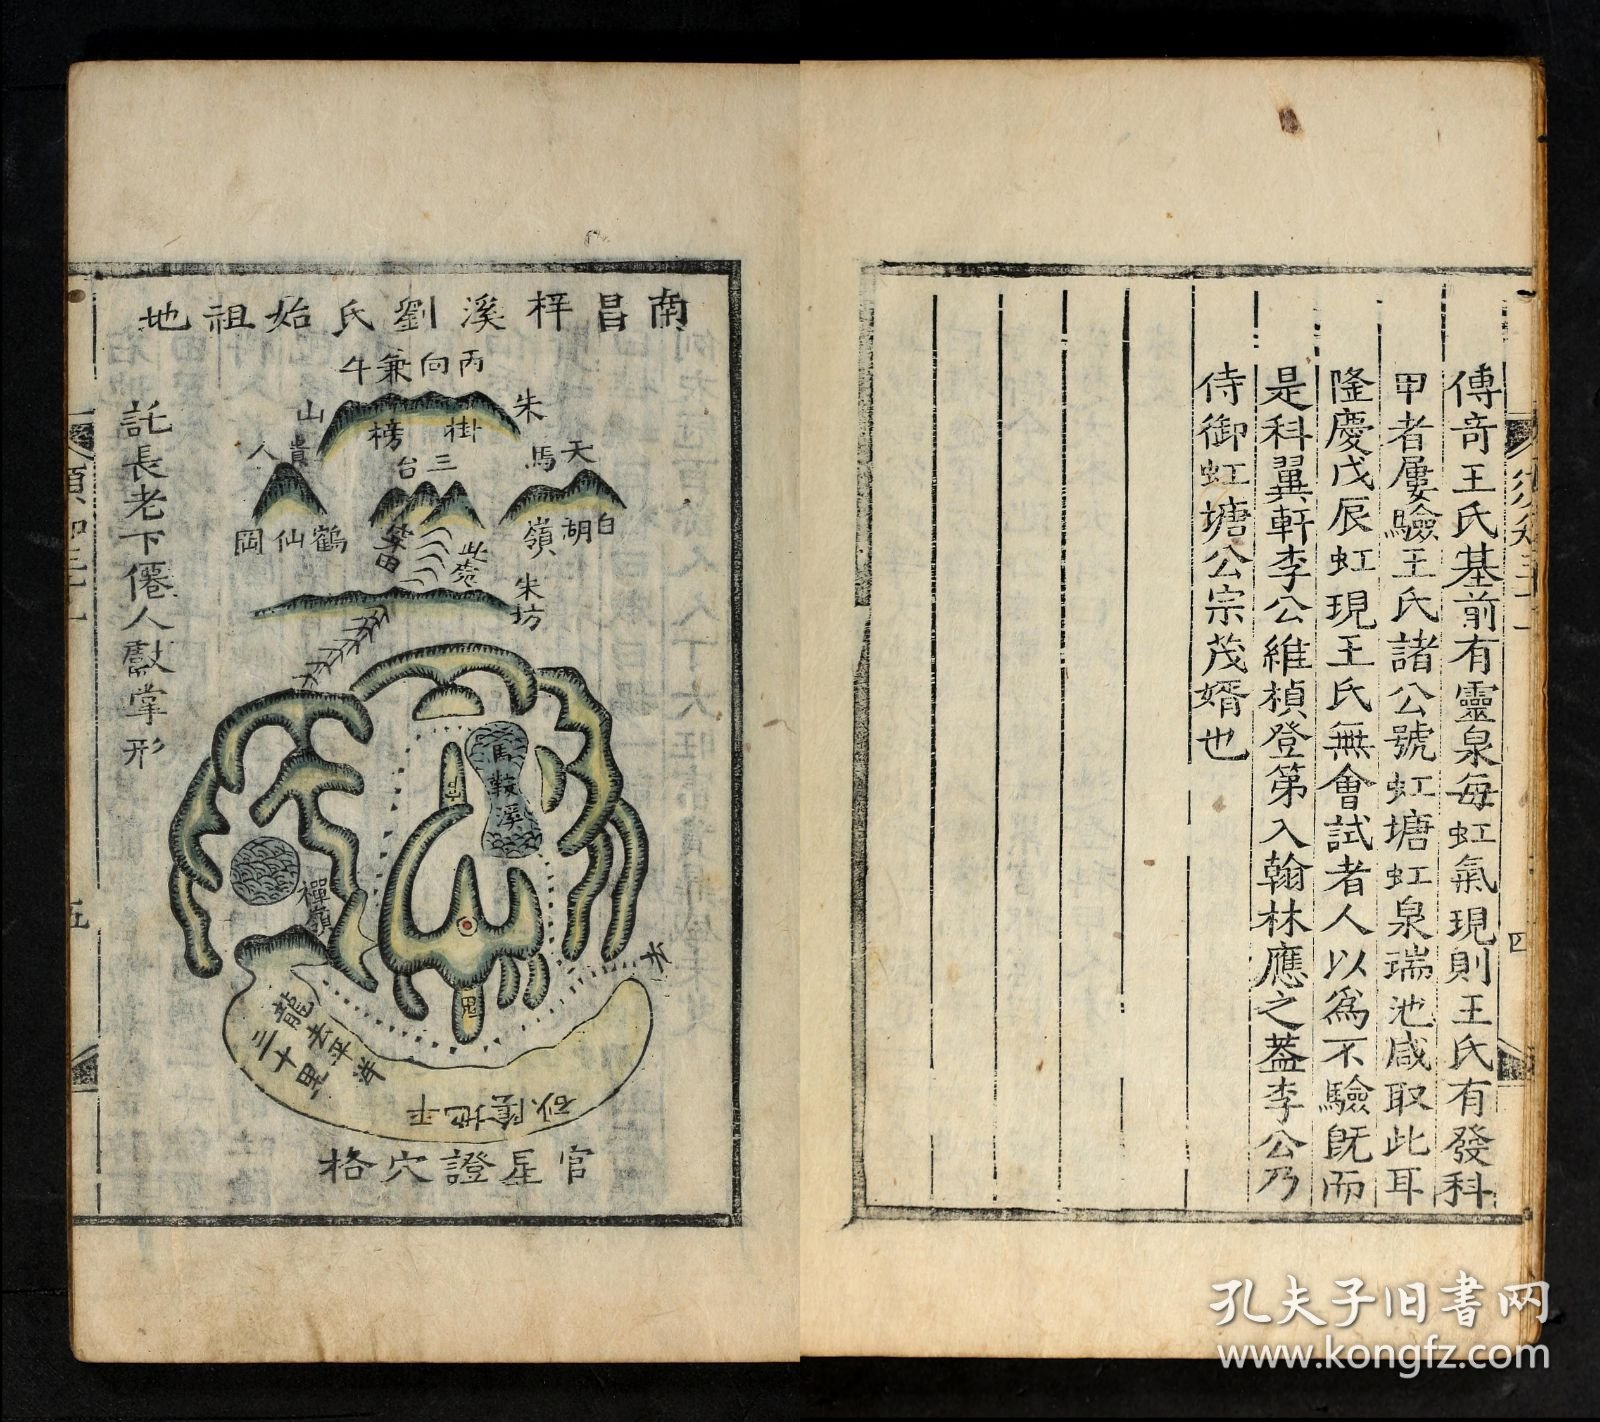 傳奇王氏基前有靈泉每虹氣現則王氏有發科
甲者屢驗王氏諸公號虹塘虹泉瑞池咸取此耳
隆慶戊辰虹現王氏無會試者人以為不驗既而
是科翼軒李公維楨登第入翰林應之葢李公乃
侍御虹塘公宗茂婿也
四
南昌梓溪劉氏始祖地
丙向兼牛
朱
掛榜山
天馬
三台
貴人
白胡嶺
鶴仙岡
此處
朱坊
託長老下僊人獻掌形
馬鞍溪
禪嶺
鬼
水
龍去平洋
三十里
平地隂砂
官星證穴格
五
孔夫子旧书网
www.kongfz.com